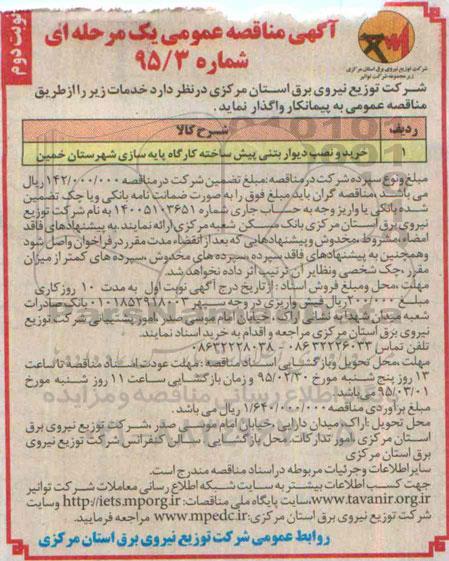 نوبت دوم
آگهی مناقصه عمومی یک مرحله ای
شماره ۹۵/۳
شرکت توزیع نیروی برق استان مرکزی
زیر مجموعه شرکت توانیر
شرکت توزیع نیروی برق استان مرکزی درنظر دارد خدمات زیر را از طریق
مناقصه عمومی به پیمانکار واگذار نماید.
ردیف شرح کالا
۱ خرید و نصب دیوار بتنی پیش ساخته کارگاه پایه سازی شهرستان خمین
مبلغ ونوع سپرده شرکت در مناقصه: مبلغ تضمین شرکت در مناقصه ۱۴۲/۰۰۰/۰۰۰ ریال
می باشد. مناقصه گران باید مبلغ فوق را به صورت ضمانت نامه بانکی ویا چک تضمین
شده بانکی یا واریز وجه به حساب جاری شماره ۱۴۰۰۵۱۰۳۶۵۱ به نام شرکت توزیع
نیروی برق استان مرکزی بانک مسکن شعبه مرکزی ارائه نمایند. به پیشنهادهای فاقد
امضاء، مشروط، مخدوش و پیشنهادهایی که بعد از انقضاء مدت مقرر در فراخوان واصل شود
وهمچنین به پیشنهادهای فاقد سپرده، سپرده های مخدوش، سپرده های کمتر از میزان
مقرر، چک شخصی ونظایر آن ترتیب اثر داده نخواهد شد.
مهلت، محل ومبلغ فروش اسناد: از تاریخ درج آگهی نوبت اول به مدت ۱۰ روز کاری
مبلغ ۲۰۰/۰۰۰ ریال فیش واریزی در وجه سپهر ۰۱۰۱۸۵۲۹۱۸۰۰۳ بانک صادرات
شعبه میدان شهدا به نشانی اراک، خیابان امام موسی صدر، امور پشتیبانی شرکت توزیع
نیروی برق استان مرکزی مراجعه و اقدام به خرید اسناد نمایند.
تلفن تماس ۰۸۶۳۲۲۲۶۰۳۳ - ۰۸۶۳۲۲۲۸۰۳۸
مهلت، محل تحویل وبازگشایی اسناد مناقصه: مهلت عودت اسناد مناقصه تا ساعت
۱۳ روز پنج شنبه مورخ ۹۵/۰۲/۳۰ و زمان بازگشایی ساعت ۱۱ روز شنبه مورخ
۹۵/۰۳/۰۱ می باشد.
مبلغ برآوردی مناقصه ۱/۶۴۰/۰۰۰/۰۰۰ ریال می باشد.
محل تحویل: اراک، میدان دارایی، خیابان امام موسی صدر، شرکت توزیع نیروی برق
استان مرکزی امور تدارکات، محل بازگشایی سالن کنفرانس شرکت توزیع نیروی
برق استان مرکزی
سایر اطلاعات وجزئیات مربوطه در اسناد مناقصه مندرج است.
جهت کسب اطلاعات بیشتر به سایت شبکه اطلاع رسانی معاملات شرکت توانیر
www.tavanir.org.ir، سایت پایگاه ملی مناقصات: http://iets.mporg.ir وسایت
شرکت توزیع نیروی برق استان مرکزی: www.mpedc.ir مراجعه فرمایید.
روابط عمومی شرکت توزیع نیروی برق استان مرکزی